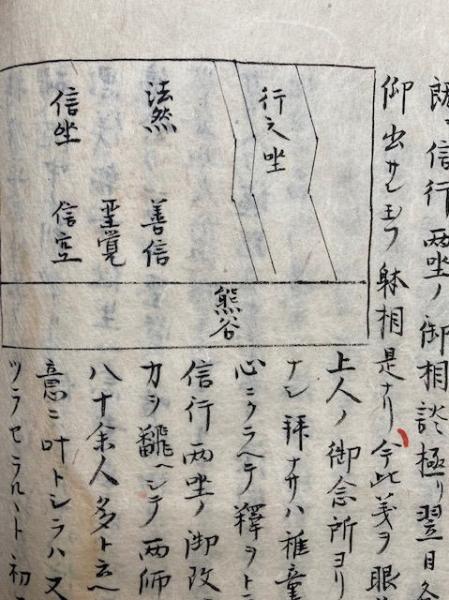 朗、信行両坐ノ御相談極リ翌日各
仰出サレ玉フ躰相是ナリ今此義ヲ眼
行之坐
法然　善信
聖覚
信坐　信空
熊谷
上人ノ御念所ヨリ
ナシ拝ナサハ稚童
心ニクラヘテ釋ヲト
信行両坐ノ御改
カヲ飜ヘシテ両師
八十余人多ト云ヘ
意ニ叶トシラハ又
ツラセラルヽト初